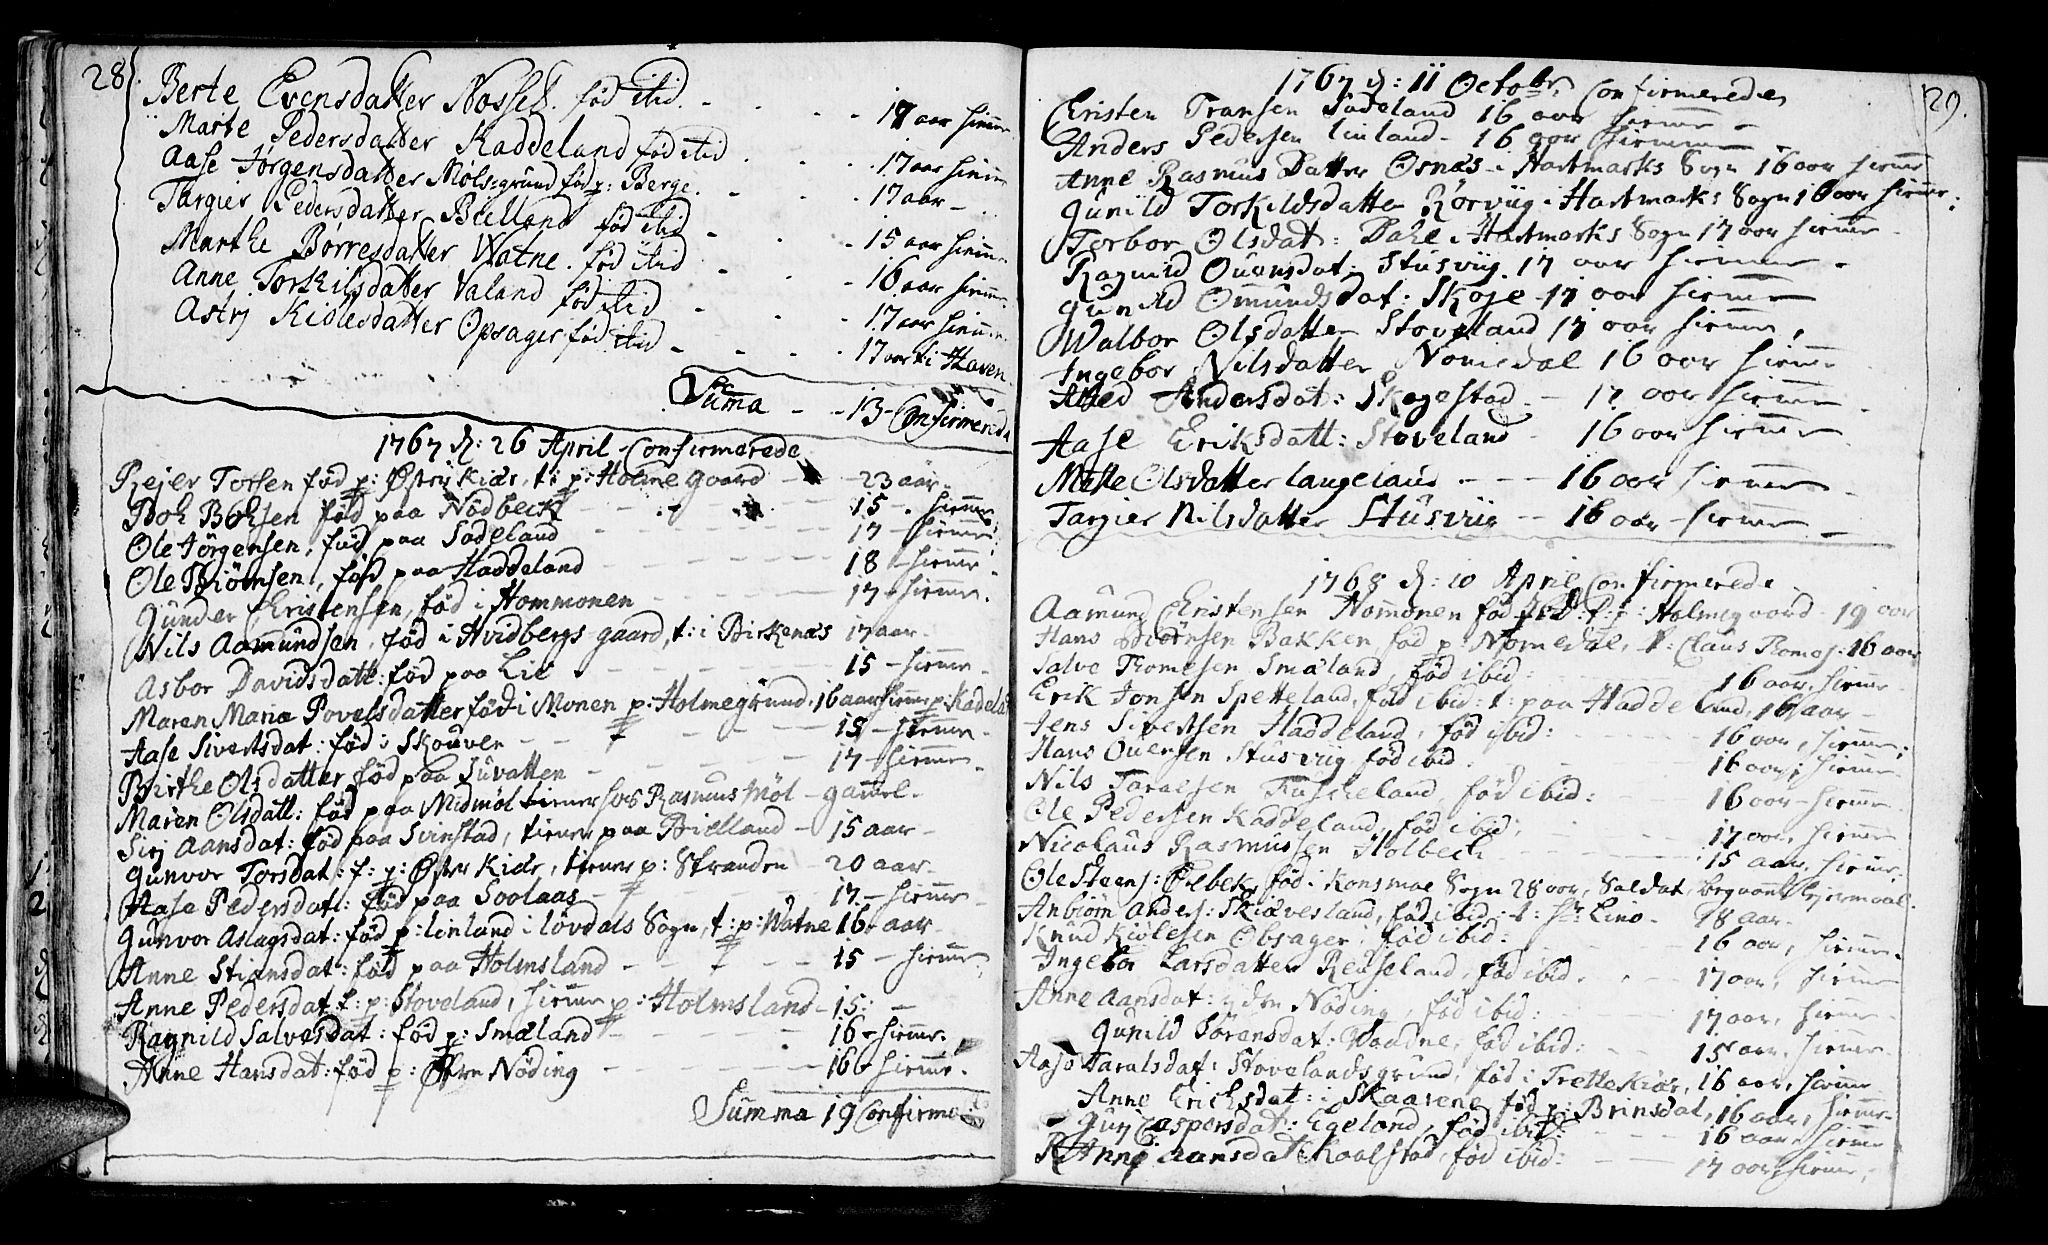 28.
Berte Evensdatter Nosset. fød itid. - - - 17 aar hiemme
Marte Pedersdatter Kaddeland fød itid - - - 17 aar hiemme
Aase Jørgensdatter Mølsgrund fød p: Berge. - - 17 aar -
Targier Pedersdatter Bielland fød itid - - 15 aar hiemme
Marthe Børresdatter Watne. fød itid - - 16 aar hiemme
Anne Torkilsdatter Valand fød itid - - 17 aar hiemme
Astrj Kidlesdatter Opsager fød itid - - - 17 aar ti Haven
Summa - - 13 Confirmerede
1767 d: 26 April Confirmerede
Rejer Torsen fød p: Østrekiær, t: p: Holmegaard - - 23 aar.
Boh Bohsen fød paa Nødbeck - - - 15 - hiemme
Ole Jørgensen, fød paa Sodeland - - - 17 - hiemme
Ole Biörnsen, fød paa Haddeland - - - 18 - hiemme
Gunder Christensen, fød i Hommonen - - - 17 - hiemme.
Nils Aamundsen, fød i Hvidbergs gaard, t: i Birkenæs 17 aar.
Asbor Davidsdatt: fød paa Lie - - - 15 - hiemme
Maren Maria Povelsdatter fød i Monen p: Holmegrund. 16 aar hiemme p: Kadela
Aase Sivertsdat: fød i Skouven - - - 18 - hiemme
Birthe Olsdatter fød paa Suvatten - - - 17 - hiemme
Maren Olsdatt: fød paa Midmøl tiener hos Rasmus Møl - gammel.
Sirj Aansdat: fød paa Svinstad, tiener paa Bielland - 15 aar -
Gunvor Torsdat: f: p: Østerkiær, tiener p: Stranden - 20 aar.
Aase Pedersdatt: fød paa Soolaas - - - 17 - hiemme
Gunvor Aslagsdat: fød p: linland i løvdals Sogn, t: p: Watne 16 - aar
Anne Stiansdat: fød paa Holmsland - - - 15 - hiemme
Anne Pedersdat. f: p: Stoveland, hiemme p: Holmsland - 15: -
Ragnild Salvesdat: fød p: Smæland - - - 16 - hiemme.
Anne Hansdat: fød p: Øvre Nöding - - - 16 - hiemme.
Summa 19 Confirme
29.
1767 d: 11 Octobr, Confirmerede
Cristen Fransen Sodeland 16 aar hiemme -
Anders Pedersen linland - 16 aar hiemme
Anne Rasmus Datter Osnæs i Hartmarks Sogn 16 aar hiemme
Gunild Torkildsdatter Rörviig i Hartmarks Sogn 16 aar hiemme
Torbor Olsdat: Dahl i Hartmarks Sogn 17 aar hiemme
Ragnild Ouensdat: Stusviig 17 aar hiemme -
Gunild Omundsdat: Skoje 17 aar hiemme
Walbor Olsdatter Stoveland 17 aar hiemme
Ingebor Nilsdatter Nomedal 16 aar hiemme
Alhed Andersdat: Skogestad - 17 aar hiemme
Aase Eriksdatt: Stoveland - 16 aar hiemme
Mette Olsdatter langeland - - - 16 aar hiemme
Targier Nilsdatter Stusviig - - 16 aar - hiemme
1768 d: 10 April Confirmerede
Aamund Cristensen Hommonen fød t: p: Holmegaard - 19 aar
Hans Biörnsen Bakken fød p: Nomedal, t: Claus Thomas: 16 aar
Salve Thomesen Smæland, fød ibid: 16 aar, hiemme
Erik Jonsen Spetteland, fød ibid: t: paa Haddeland, 16 aar -
Jens Sivertsen Haddeland, fød ibid: 16 aar, hiemme
Hans Ouensen Stusviig fød ibid. 16 aar, hiemme
Nils Taralsen Fuskeland, fød ibid: 16 aar - hiemme
Ole Pedersen Kaddeland, fød ibid: 17 aar, hiemme
Nicolaus Rasmussen Holbeck 15 aar, hiemme
Ole Steens: Örebek, fød i Konsmoe Sogn 28 aar, Saldat,
Anbiörn Anders: Skiævesland, fød ibid: t: Hr: Lino - 18 aar -
Knud Kiölesen Obsager, fød ibid: 16 aar, hiemme.
Ingebor Larsdatter Reuseland, fød ibid. 17 aar, hiemme
Anne Aansdat: yden Nöding, fød ibid: 17 aar, hiemme
Gunild Sörensdat: Waadne, fød ibid: 15 aar, hiemme
Aase Taralsdat: Stovelandsgrund, fød i Trettekiær, 16 aar, hiemme
Anne Erichsdat: i Skaarene fød p: Brinsdal, 16 aar, hiemme
Gurj Caspersdat: Egeland, fød ibid: 16 aar, hiemme
Anne Aansdat: Kaalstad, fød ibid: 17 aar, hiemme,